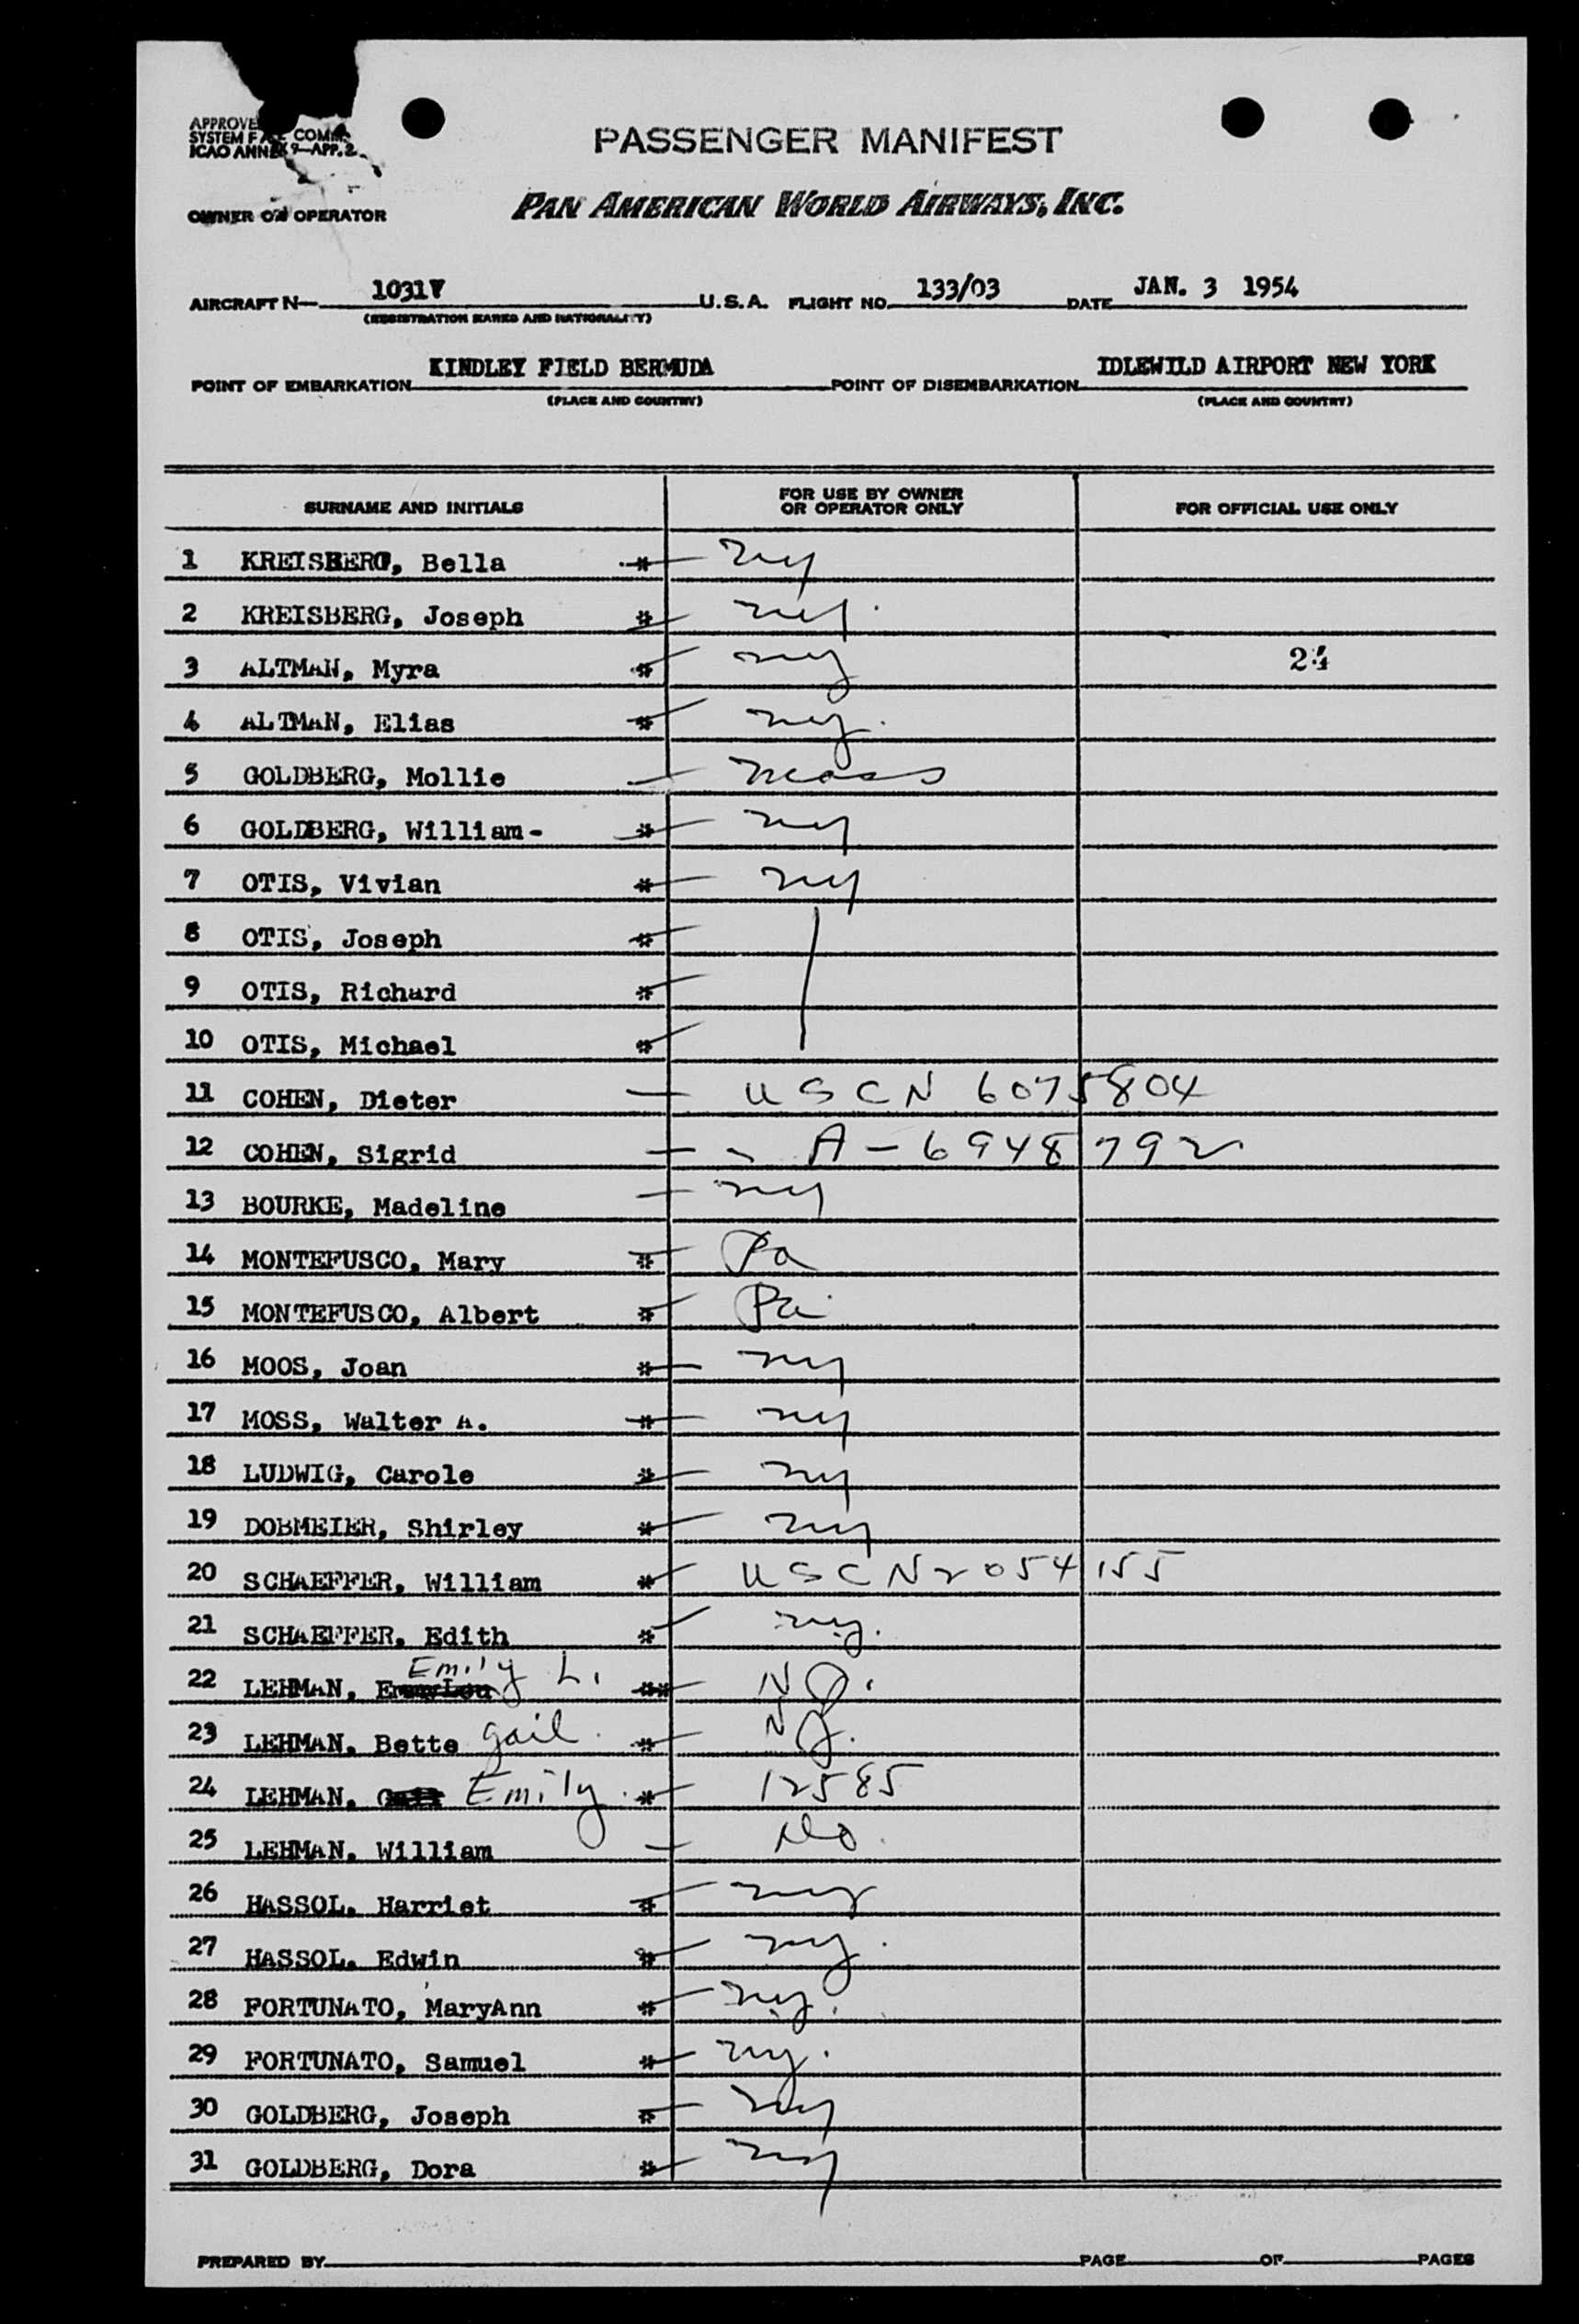 APPROVE
SYSTEM F COMM.
ICAO ANNEX 9—APP. 2
PASSENGER MANIFEST
OWNER OR OPERATOR PAN AMERICAN WORLD AIRWAYS, INC.
AIRCRAFT N— 1031V U.S.A. FLIGHT NO. 133/03 DATE JAN. 3 1954
(REGISTRATION MARKS AND NATIONALITY)
POINT OF EMBARKATION KINDLEY FIELD BERMUDA POINT OF DISEMBARKATION IDLEWILD AIRPORT NEW YORK
(PLACE AND COUNTRY) (PLACE AND COUNTRY)
SURNAME AND INITIALS FOR USE BY OWNER OR OPERATOR ONLY FOR OFFICIAL USE ONLY
1 KREISBERG, Bella * ny
2 KREISBERG, Joseph * ny.
3 ALTMAN, Myra * ny 24
4 ALTMAN, Elias * ny.
5 GOLDBERG, Mollie mass
6 GOLDBERG, William- * ny
7 OTIS, Vivian * ny
8 OTIS, Joseph *
9 OTIS, Richard *
10 OTIS, Michael *
11 COHEN, Dieter — USCN 6075804
12 COHEN, Sigrid — A-6948792
13 BOURKE, Madeline — ny
14 MONTEFUSCO, Mary * Pa
15 MONTEFUSCO, Albert * Pa
16 MOOS, Joan * ny
17 MOSS, Walter A. * ny
18 LUDWIG, Carole * ny
19 DOBMEIER, Shirley * ny
20 SCHAEFFER, William * USCN 2054155
21 SCHAEFFER, Edith * ny.
22 LEHMAN, Emily L. ** NJ.
23 LEHMAN, Bette Gail * NJ.
24 LEHMAN, Gail Emily * 12585
25 LEHMAN, William —
26 HASSOL, Harriet * ny
27 HASSOL, Edwin * ny.
28 FORTUNATO, MaryAnn * ny.
29 FORTUNATO, Samuel * ny.
30 GOLDBERG, Joseph * ny
31 GOLDBERG, Dora * ny
PREPARED BY PAGE OF PAGES